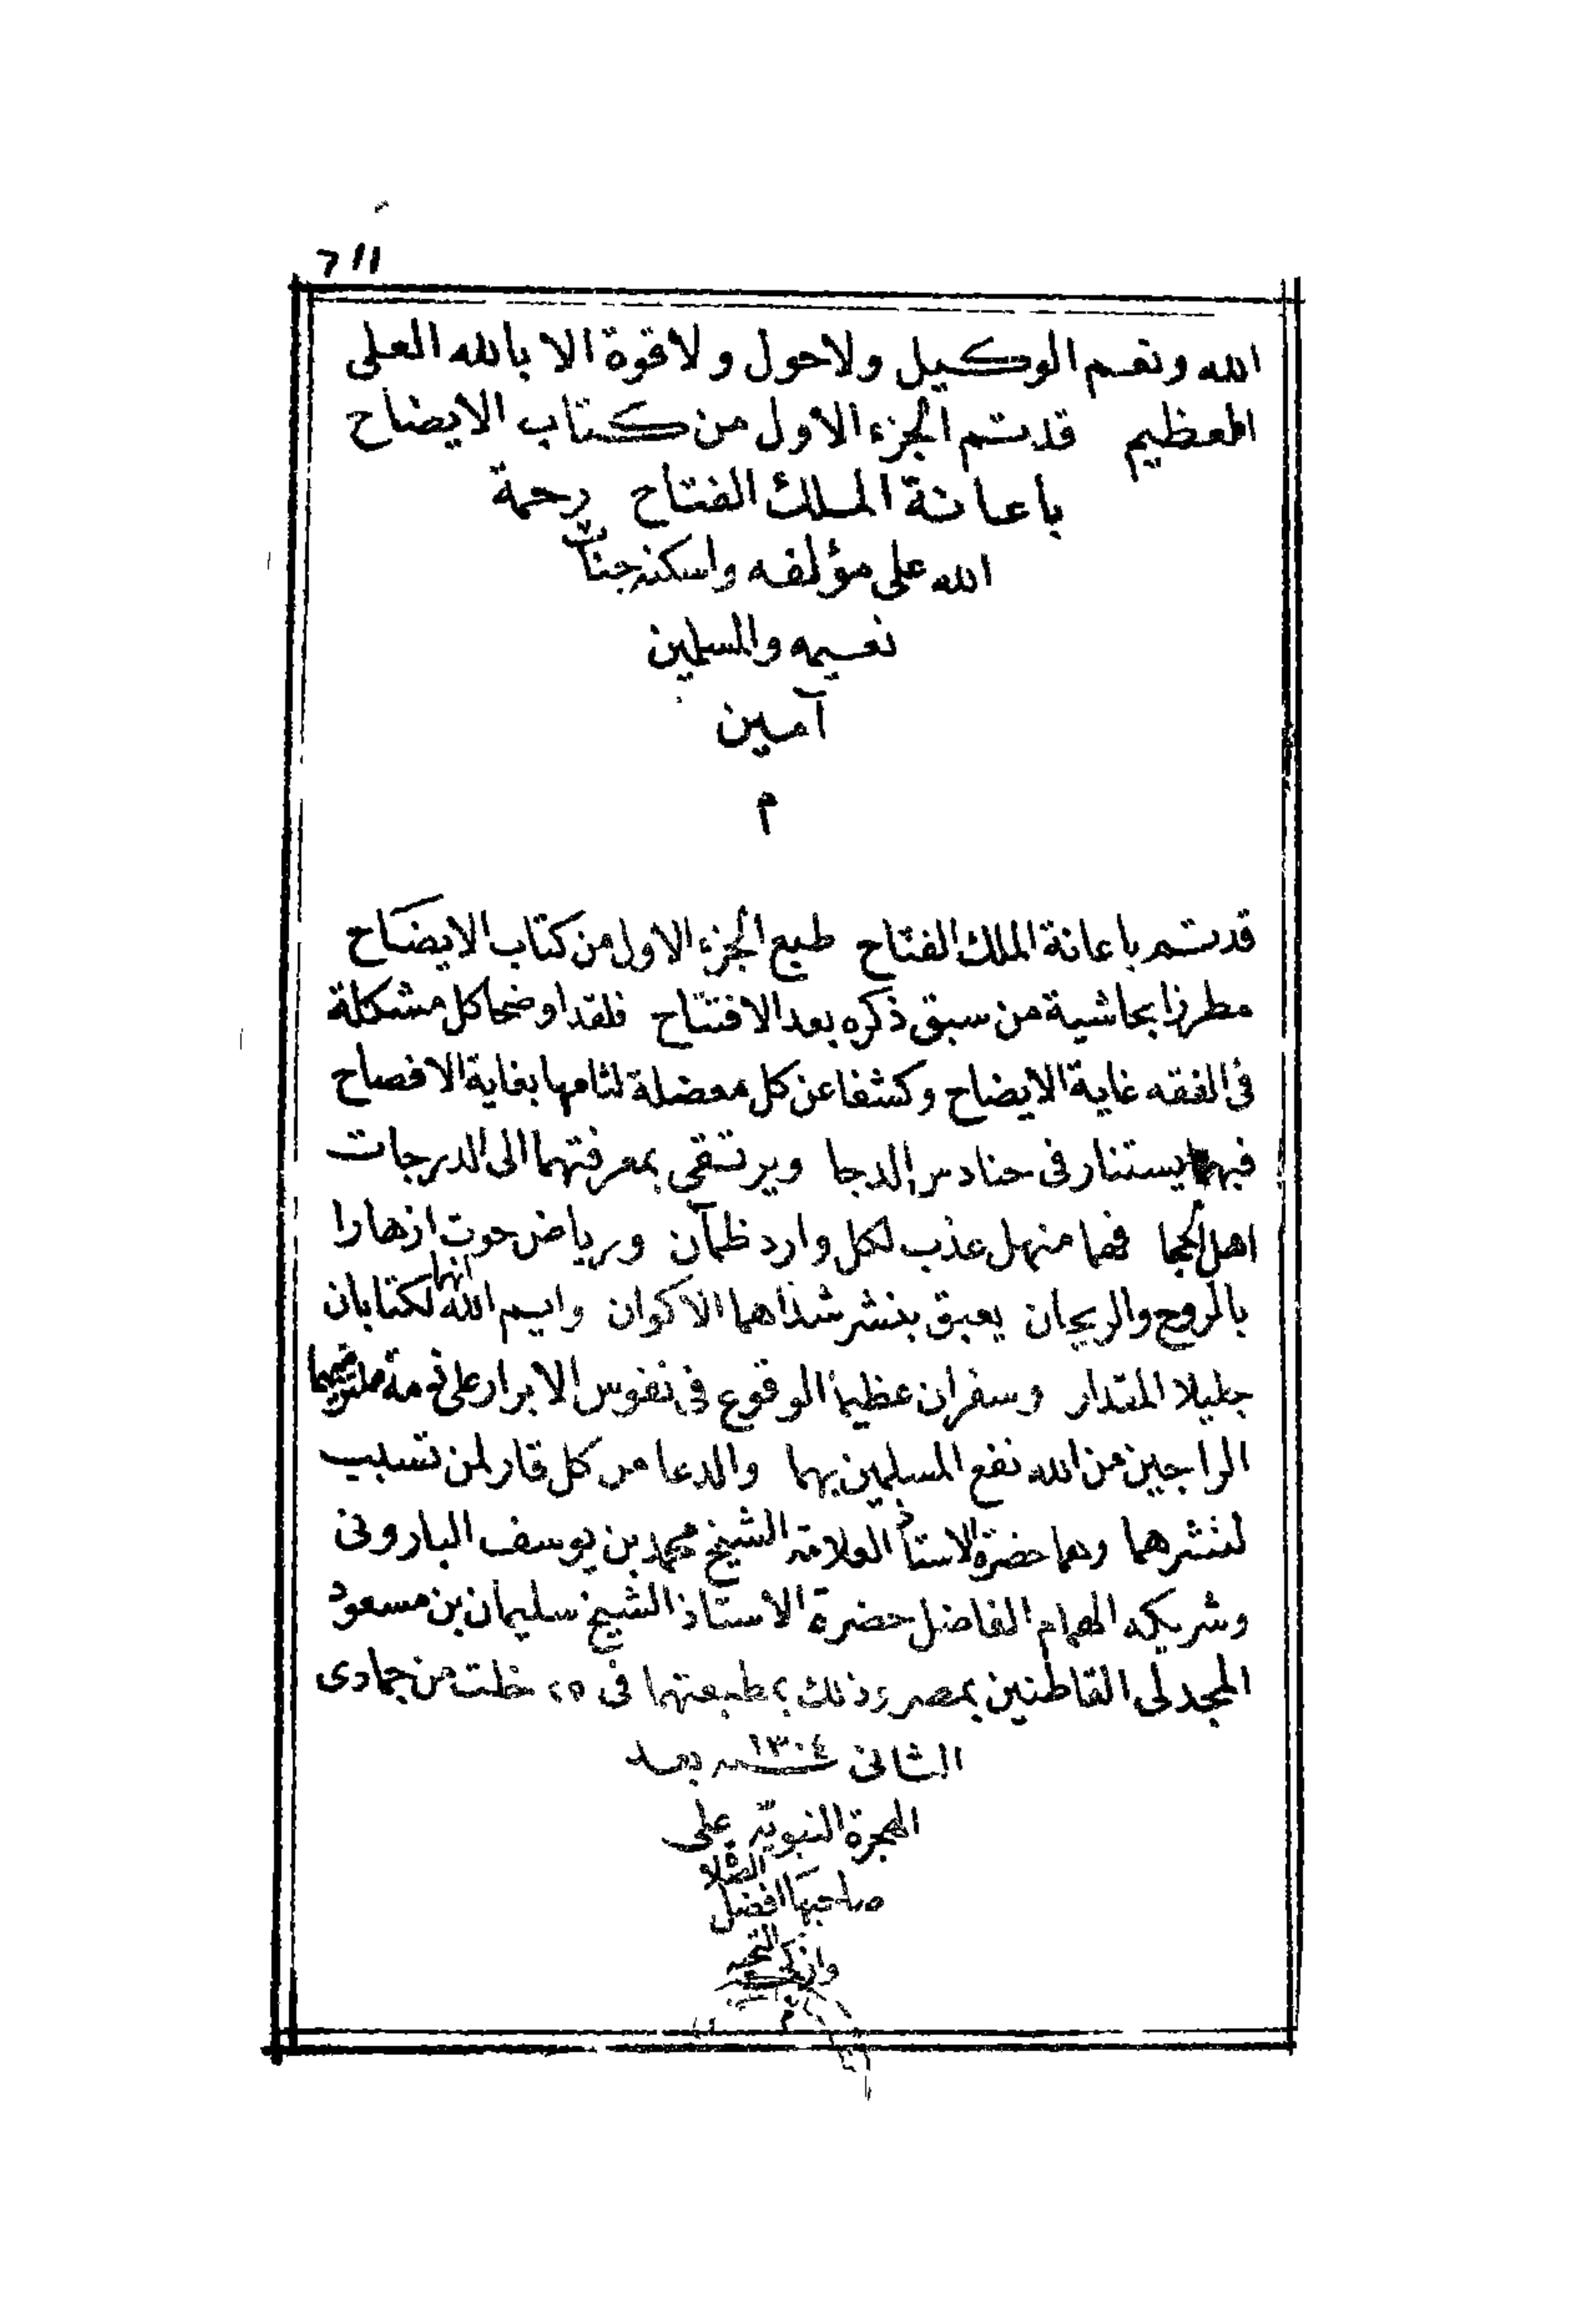 ٦١١
الله ونعم الوكيل ولاحول ولاقوة الا بالله العلى
العظيم قد تم الجزء الاول من كتاب الايضاح
باعانة الملك الفتاح رحمة
الله على مؤلفه واسكنه جنات
نعيمه والمسلمين
آمين
م
قد تم باعانة الملك الفتاح طبع الجزء الاول من كتاب الايضاح
مطرزا بحاشية من سبق ذكره بعد الافتتاح فلقد اوضحا كل مشكلة
فى الفقه غاية الايضاح وكشفا عن كل معضلة لثامها بغاية الافصاح
فبهما يستنار فى حنادس الدجا ويرتقى بمعرفتهما الى الدرجات
اهل الحجا فهما منهل عذب لكل وارد ظمآن ورياض حوت ازهارا
بالروح والريحان يعبق بنشر شذاهما الاكوان وايم الله انهما لكتابان
جليلا المقدار وسفران عظيما الوقوع فى نفوس الابرار على ذمة ملتزميهما
الراجين من الله نفع المسلمين بهما والدعا من كل قار لمن تسبب
لنشرهما وهما حضرة الاستاذ العلامة الشيخ محمد بن يوسف البارونى
وشريكه الهمام الفاضل حضرة الاستاذ الشيخ سليمان بن مسعود
المجدلى القاطنين بمصر وذلك بمطبعتهما فى ٢٥ خلت من جمادى
الثانى سنة ١٣٠٤ بعد
الهجرة النبوية على
صاحبها افضل الصلاة
وازكى التحية
م